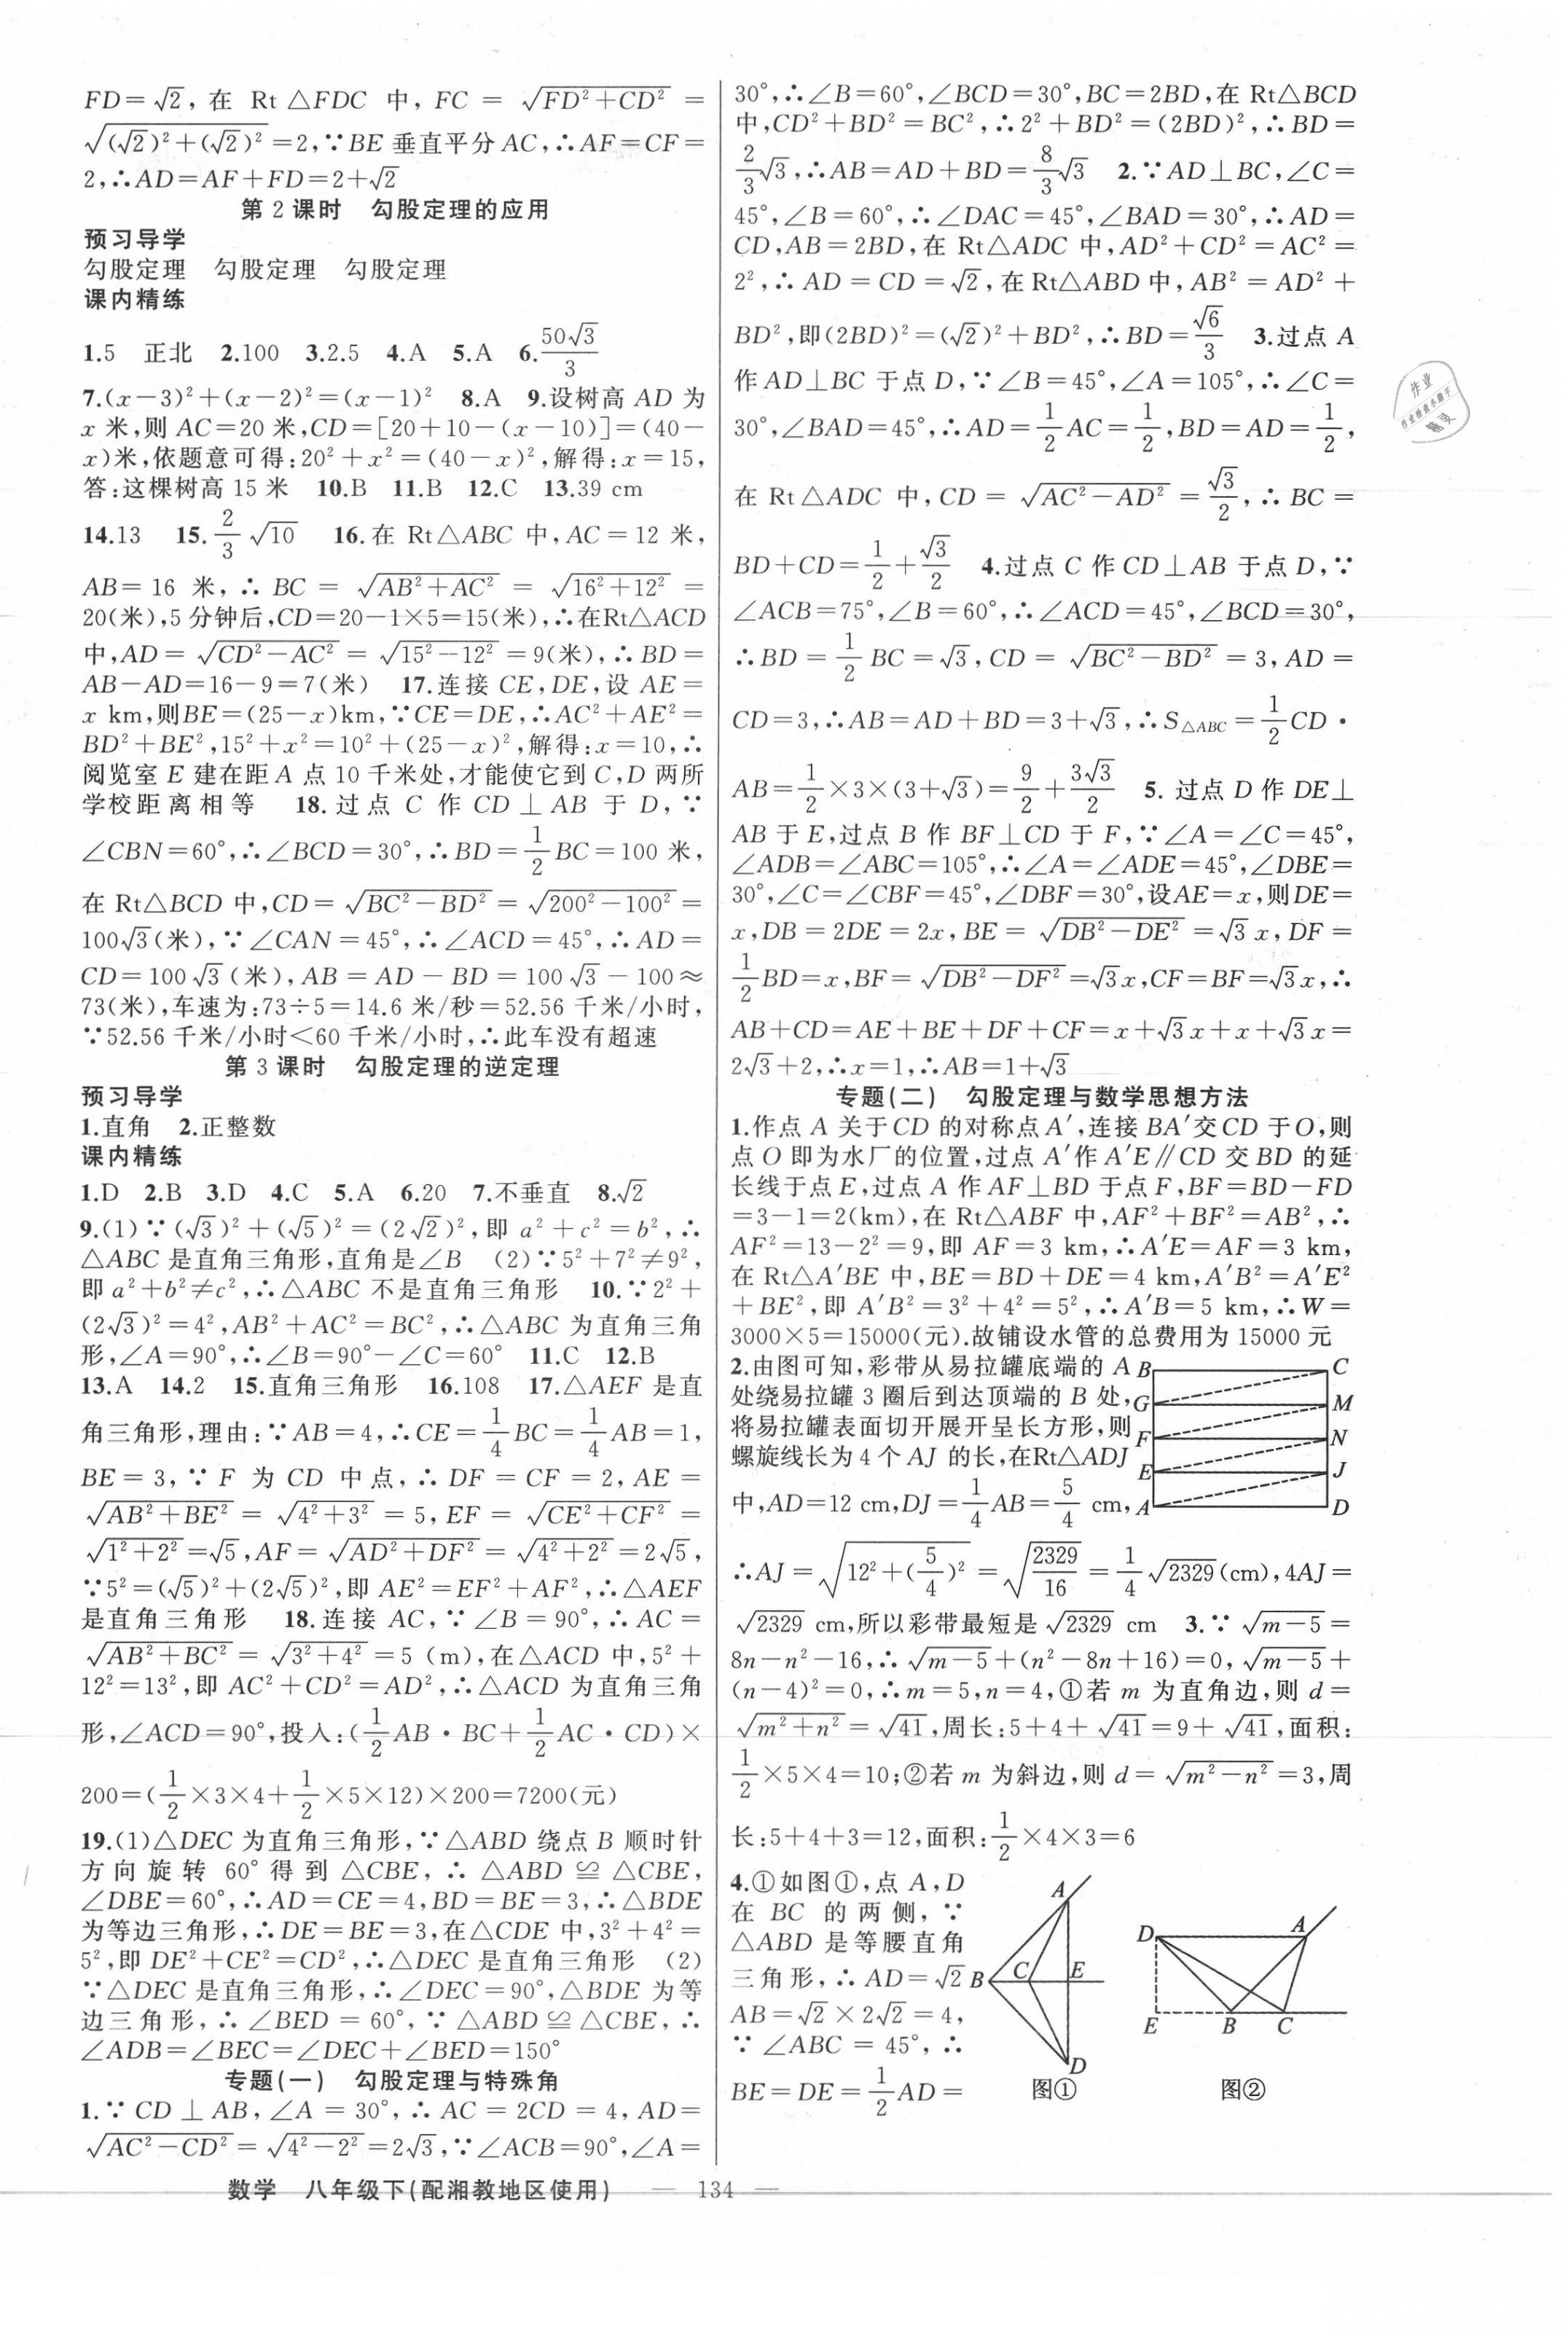 FD=√2,在 Rt△FDC 中,FC=√(FD²+CD²)=
√((√2)²+(√2)²)=2,∵BE 垂直平分 AC,∴AF=CF=
2,∴AD=AF+FD=2+√2
第 2 课时 勾股定理的应用
预习导学
勾股定理 勾股定理 勾股定理
课内精练
1.5 正北 2.100 3.2.5 4.A 5.A 6.50√3/3
7.(x-3)²+(x-2)²=(x-1)² 8.A 9.设树高 AD 为
x 米,则 AC=20 米,CD=[20+10-(x-10)]=(40-
x)米,依题意可得:20²+x²=(40-x)²,解得:x=15,
答:这棵树高 15 米 10.B 11.B 12.C 13.39 cm
14.13 15.2/3√10 16.在 Rt△ABC 中,AC=12 米,
AB=16 米,∴BC=√(AB²+AC²)=√(16²+12²)=
20(米),5 分钟后,CD=20-1×5=15(米),∴在Rt△ACD
中,AD=√(CD²-AC²)=√(15²-12²)=9(米),∴BD=
AB-AD=16-9=7(米) 17.连接 CE,DE,设 AE=
x km,则BE=(25-x)km,∵CE=DE,∴AC²+AE²=
BD²+BE²,15²+x²=10²+(25-x)²,解得:x=10,∴
阅览室 E 建在距A 点 10 千米处,才能使它到 C,D 两所
学校距离相等 18.过点 C 作 CD⊥AB 于 D,∵
∠CBN=60°,∴∠BCD=30°,∴BD=1/2BC=100 米,
在 Rt△BCD 中,CD=√(BC²-BD²)=√(200²-100²)=
100√3(米),∵∠CAN=45°,∴∠ACD=45°,∴AD=
CD=100√3(米),AB=AD-BD=100√3-100≈
73(米),车速为:73÷5=14.6 米/秒=52.56 千米/小时,
∵52.56 千米/小时<60 千米/小时,∴此车没有超速
第 3 课时 勾股定理的逆定理
预习导学
1.直角 2.正整数
课内精练
1.D 2.B 3.D 4.C 5.A 6.20 7.不垂直 8.√2
9.(1)∵(√3)²+(√5)²=(2√2)²,即 a²+c²=b²,∴
△ABC 是直角三角形,直角是∠B (2)∵5²+7²≠9²,
即 a²+b²≠c²,∴△ABC 不是直角三角形 10.∵2²+
(2√3)²=4²,AB²+AC²=BC²,∴△ABC 为直角三角
形,∠A=90°,∴∠B=90°-∠C=60° 11.C 12.B
13.A 14.2 15.直角三角形 16.108 17.△AEF 是直
角三角形,理由:∵AB=4,∴CE=1/4BC=1/4AB=1,
BE=3,∵F 为 CD 中点,∴DF=CF=2,AE=
√(AB²+BE²)=√(4²+3²)=5,EF=√(CE²+CF²)=
√(1²+2²)=√5,AF=√(AD²+DF²)=√(4²+2²)=2√5,
∵5²=(√5)²+(2√5)²,即 AE²=EF²+AF²,∴△AEF
是直角三角形 18.连接 AC,∵∠B=90°,∴AC=
√(AB²+BC²)=√(3²+4²)=5(m),在△ACD 中,5²+
12²=13²,即 AC²+CD²=AD²,∴△ACD 为直角三角
形,∠ACD=90°,投入:(1/2AB·BC+1/2AC·CD)×
200=(1/2×3×4+1/2×5×12)×200=7200(元)
19.(1)△DEC 为直角三角形,∵△ABD 绕点 B 顺时针
方向旋转 60°得到 △CBE,∴△ABD≌△CBE,
∠DBE=60°,∴AD=CE=4,BD=BE=3,∴△BDE
为等边三角形,∴DE=BE=3,在△CDE 中,3²+4²=
5²,即 DE²+CE²=CD²,∴△DEC 是直角三角形 (2)
∵△DEC 是直角三角形,∴∠DEC=90°,△BDE 为等
边三角形,∴∠BED=60°,∵△ABD≌△CBE,∴
∠ADB=∠BEC=∠DEC+∠BED=150°
专题(一) 勾股定理与特殊角
1.∵CD⊥AB,∠A=30°,∴AC=2CD=4,AD=
√(AC²-CD²)=√(4²-2²)=2√3,∵∠ACB=90°,∠A=
30°,∴∠B=60°,∠BCD=30°,BC=2BD,在 Rt△BCD
中,CD²+BD²=BC²,∴2²+BD²=(2BD)²,∴BD=
2/3√3,∴AB=AD+BD=8/3√3 2.∵AD⊥BC,∠C=
45°,∠B=60°,∴∠DAC=45°,∠BAD=30°,∴AD=
CD,AB=2BD,在 Rt△ADC 中,AD²+CD²=AC²=
2²,∴AD=CD=√2,在 Rt△ABD 中,AB²=AD²+
BD²,即(2BD)²=(√2)²+BD²,∴BD=√6/3 3.过点 A
作 AD⊥BC 于点 D,∵∠B=45°,∠A=105°,∴∠C=
30°,∠BAD=45°,∴AD=1/2AC=1/2,BD=AD=1/2,
在 Rt△ADC 中,CD=√(AC²-AD²)=√3/2,∴BC=
BD+CD=1/2+√3/2 4.过点 C 作 CD⊥AB 于点 D,∵
∠ACB=75°,∠B=60°,∴∠ACD=45°,∠BCD=30°,
∴BD=1/2BC=√3,CD=√(BC²-BD²)=3,AD=
CD=3,∴AB=AD+BD=3+√3,∴S△ABC=1/2CD·
AB=1/2×3×(3+√3)=9/2+3√3/2 5.过点 D 作 DE⊥
AB 于 E,过点 B 作 BF⊥CD 于 F,∵∠A=∠C=45°,
∠ADB=∠ABC=105°,∴∠A=∠ADE=45°,∠DBE=
30°,∠C=∠CBF=45°,∠DBF=30°,设AE=x,则DE=
x,DB=2DE=2x,BE=√(DB²-DE²)=√3x,DF=
1/2BD=x,BF=√(DB²-DF²)=√3x,CF=BF=√3x,∴
AB+CD=AE+BE+DF+CF=x+√3x+x+√3x=
2√3+2,∴x=1,∴AB=1+√3
专题(二) 勾股定理与数学思想方法
1.作点 A 关于CD 的对称点A′,连接 BA′交CD 于O,则
点 O 即为水厂的位置,过点 A′作 A′E∥CD 交 BD 的延
长线于点 E,过点 A 作 AF⊥BD 于点 F,BF=BD-FD
=3-1=2(km),在 Rt△ABF 中,AF²+BF²=AB²,∴
AF²=13-2²=9,即 AF=3 km,∴A′E=AF=3 km,
在 Rt△A′BE 中,BE=BD+DE=4 km,A′B²=A′E²
+BE²,即 A′B²=3²+4²=5²,∴A′B=5 km,∴W=
3000×5=15000(元).故铺设水管的总费用为 15000 元
2.由图可知,彩带从易拉罐底端的 A
处绕易拉罐 3 圈后到达顶端的 B 处,
将易拉罐表面切开展开呈长方形,则
螺旋线长为 4 个 AJ 的长,在Rt△ADJ
中,AD=12 cm,DJ=1/4AB=5/4 cm,
B C
G M
F N
E J
A D
∴AJ=√(12²+(5/4)²)=√(2329/16)=1/4√2329(cm),4AJ=
√2329 cm,所以彩带最短是√2329 cm 3.∵√(m-5)=
8n-n²-16,∴√(m-5)+(n²-8n+16)=0,√(m-5)+
(n-4)²=0,∴m=5,n=4,①若 m 为直角边,则 d=
√(m²+n²)=√41,周长:5+4+√41=9+√41,面积:
1/2×5×4=10;②若 m 为斜边,则 d=√(m²-n²)=3,周
长:5+4+3=12,面积:1/2×4×3=6
4.①如图①,点 A,D
在 BC 的两侧,∵
△ABD 是等腰直角
三角形,∴AD=√2
AB=√2×2√2=4,
∵∠ABC=45°,∴
BE=DE=1/2AD=
A
B C E
D
图①
D A
E B C
图②
数学 八年级下(配湘教地区使用) — 134 —
作业
作业检查小助手
精灵